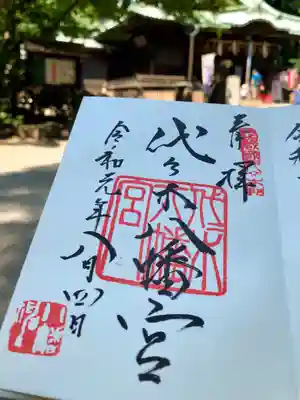 奉拝
代々木八幡宮
代々木八幡宮
令和元年八月四日